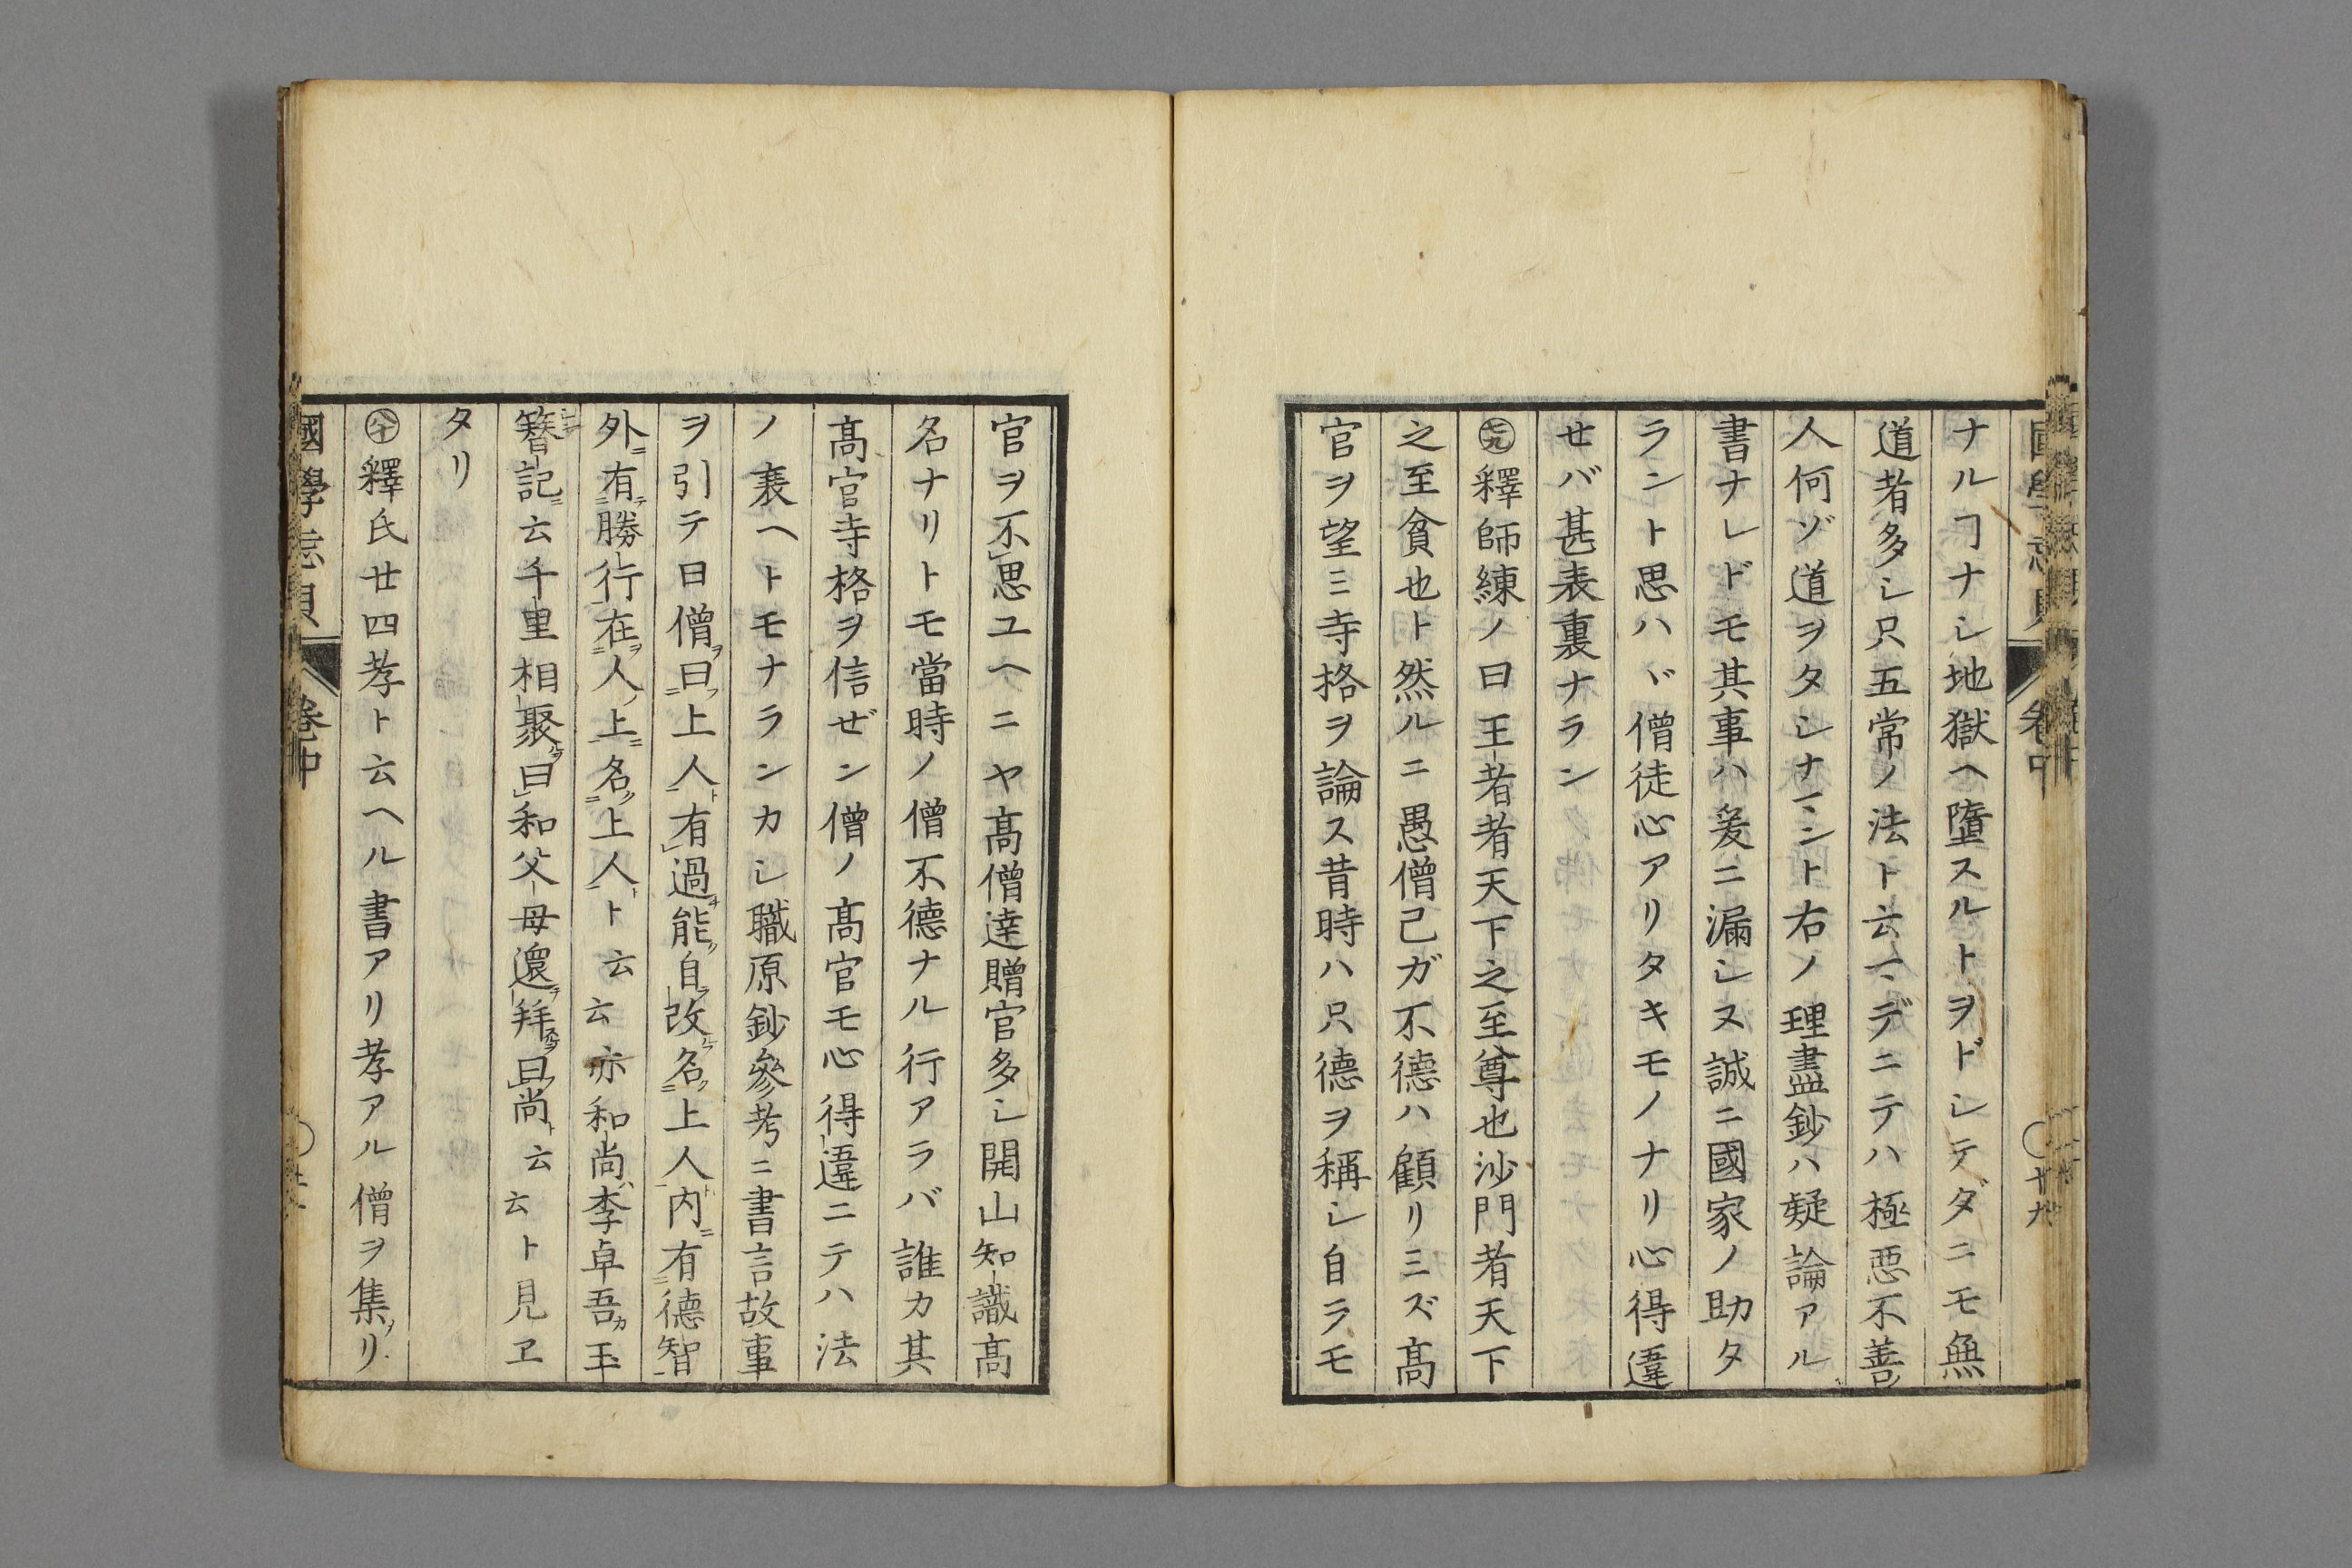 ナルヿナシ地獄ヘ墮スルトヲドシテダニモ無
道者多シ只五常ノ法ト云マデニテハ極惡不善ノ
人何ゾ道ヲタシナマント右ノ理盡鈔ハ疑論アル
書ナレドモ其事ハ爰ニ漏シヌ誠ニ國家ノ助タ
ラント思ハヾ僧徒心アリタキモノナリ心得違
せバ甚表裏ナラン
㊆九釋師練ノ曰王者者天下之至尊也沙門者天下
之至貧也ト然ルニ愚僧己ガ不德ハ顧リミズ髙
官ヲ望ミ寺格ヲ論ス昔時ハ只德ヲ稱シ自ラモ
官ヲ不思ユヘニヤ髙僧達贈官多シ開山知識髙
名ナリトモ當時ノ僧不德ナル行アラバ誰カ其
髙官寺格ヲ信ゼン僧ノ髙官モ心得違ニテハ法
ノ衰ヘトモナランカシ職原鈔參考ニ書言故事
ヲ引テ曰僧ヲ曰フ上人ト有過ヲ能ク自ラ改ムルヲ名ク上人ト内ニ有德智
外ニ有テ勝行在人ノ上ニ名ク上人トト云云亦和尚ハ李卓吾カ玉
簪記ニ云千里相聚ヲ曰和父母還テ拜スルヲ曰尚ト云云ト見エ
タリ
㊇十釋氏廿四孝ト云ヘル書アリ孝アル僧ヲ集メリ
國學忘貝
卷中